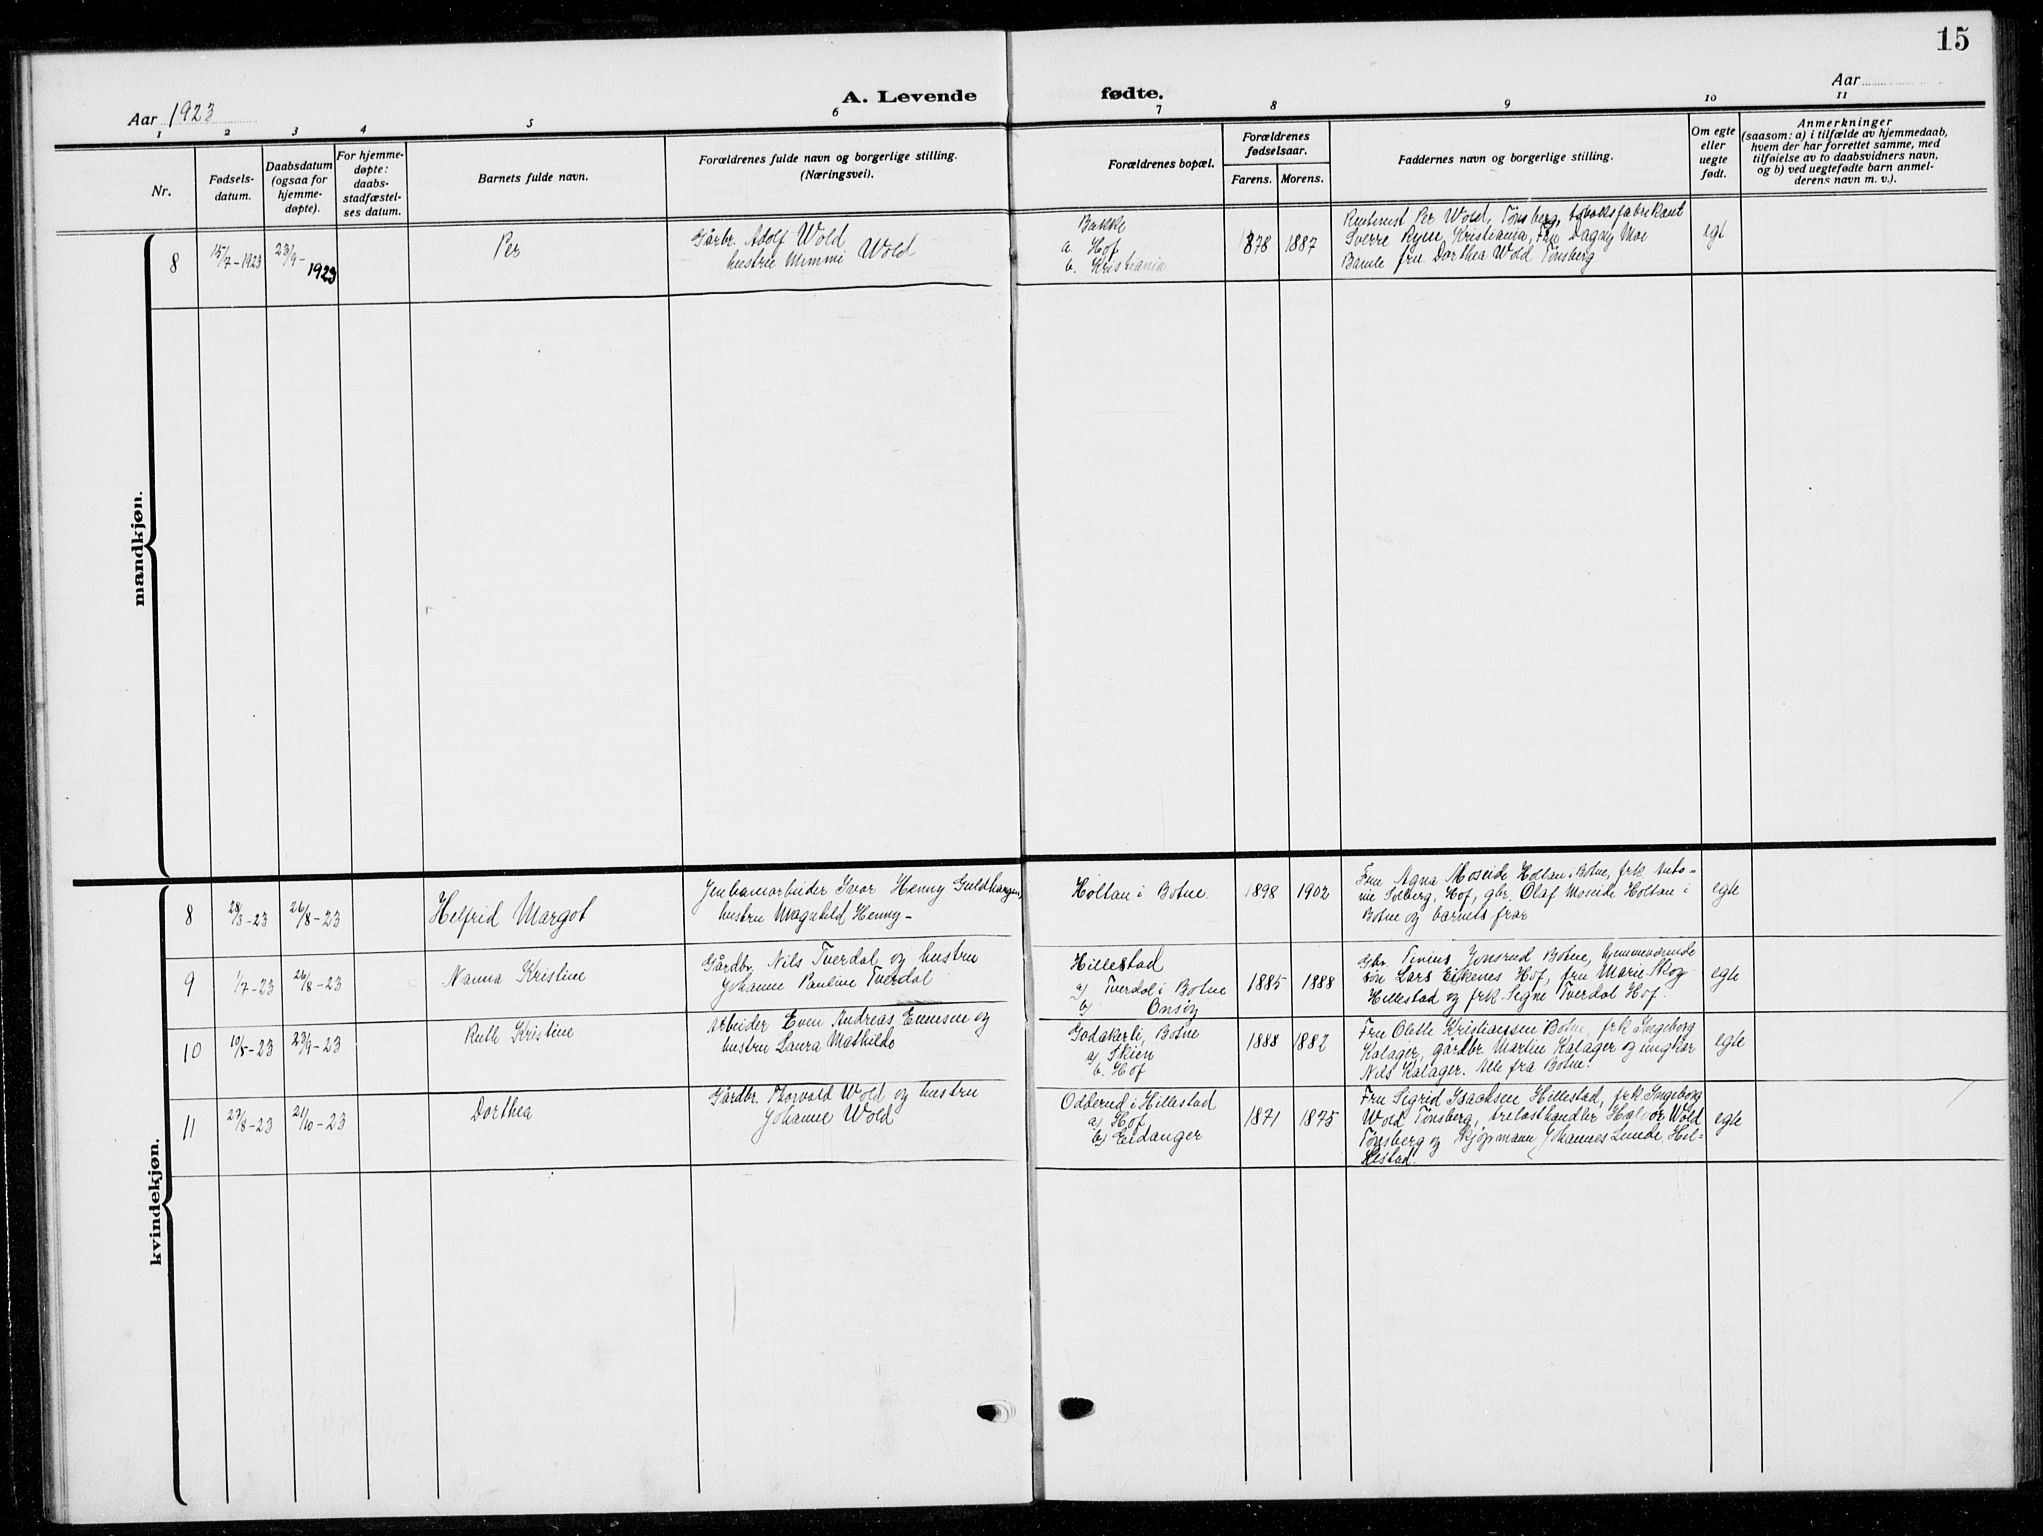 15
Aar 1923
A. Levende
fødte.
Aar
1 2 3 4 5 6 7 8 9 10 11
Nr.
Fødsels-
datum.
Daabsdatum
(ogsaa for
hjemme-
døpte).
For hjemme-
døpte:
daabs-
stadfæstel-
ses datum.
Barnets fulde navn.
Forældrenes fulde navn og borgerlige stilling.
(Næringsvei).
Forældrenes bopæl.
Forældrenes
fødselsaar.
Farens. Morens.
Faddernes navn og borgerlige stilling.
Om egte
eller
uegte
født.
Anmerkninger
(saasom: a) i tilfælde av hjemmedaab,
hvem der har forrettet samme, med
tilføielse av to daabsvidners navn,
og b) ved uegtefødte barn anmel-
derens navn m. v.).
mandkjøn.
8
15/7-1923
23/9-
1923
Per
Gårbr. Adolf Wold
hustru Mimmi Wold
Bakke
a. Hof
b. Kristiania
1878
1887
Per Wold, Tønsberg,
Sverre Ryen, Kristiania, Fru Dagny Moe
Bamle fru Dorthea Wold Tønsberg
egt
kvindekjøn.
8
28/3-23
26/8-23
Helfrid Margot
Jernbanearbeider Ivar Henny Guldhaugen,
hustru Magnhild Henny-
Holtan i Botne.
1898
1902
Fru Agna Moseide Holtan i Botne, frk. Anto-
nie Solberg, Hof, gbr. Olaf Moseide Holtan i
Botne og barnets far
egte
9
1/7-23
26/8-23
Nanna Kristine
Gårdbr. Nils Tverdal og hustru
Johanne Pauline Tverdal
Hillestad
a) Tverdal i Botne
b) Onsøy
1885
1888
Gbr. Sinius Jonsrud Botne, hjemmeværende
søn Lars Eikenes Hof, fru Marie Skog
Hillestad og frk. Signe Tverdal Hof.
egte
10
10/5-23
23/9-23
Ruth Kristine
Arbeider Even Andreas Evensen og
hustru Laura Mathilde
Godakerli, Botne
a) Skien
b. Hof
1888
1882
Fru Oldle Kristiansen Botne, frk Ingeborg
Kalager, gårdbr. Martin Kalager og ungkar
Nils Kalager. Alle fra Botne.
egte
11
29/8-23
21/10-23
Dorthea
Gårdbr. Thorvald Wold og hustru
Johanne Wold
Odberud i Hillestad
a) Hof
b) Eidanger
1871
1875
Fru Sigrid Isachsen Hillestad, frk. Ingeborg
Wold Tønsberg, trelasthandler Halvor Wold
Tønsberg og kjøpmann Johannes Lunde Hil-
lestad.
egte